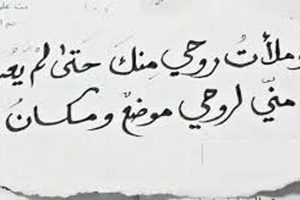 وملأتُ روحي مِنكَ حَتىٰ لمْ يَعُد
منّي لروحي موضعٌ ومكانُ